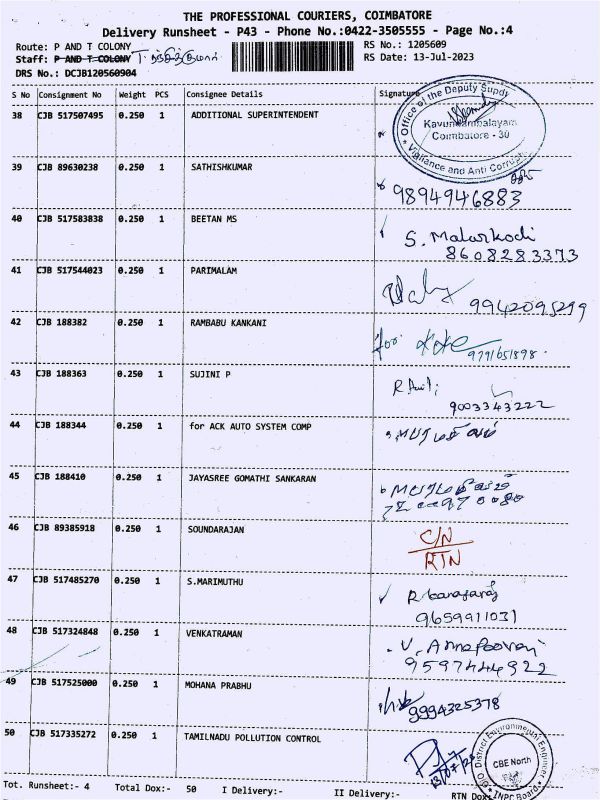 THE PROFESSIONAL COURIERS, COIMBATORE
Delivery Runsheet - P43 - Phone No.:0422-3505555 - Page No.:4
Route: P AND T COLONY RS No.: 1205609
Staff: P AND T COLONY RS Date: 13-Jul-2023
DRS No.: DCJB120560904
S No Consignment No Weight PCS Consignee Details Signature
38 CJB 517507495 0.250 1 ADDITIONAL SUPERINTENDENT
Office of the Deputy Supdt
Kavundampalayam
Coimbatore - 30
Vigilance and Anti Corruption
39 CJB 89630238 0.250 1 SATHISHKUMAR
9894946883
40 CJB 517583838 0.250 1 BEETAN MS S. Malarkodi
8608283373
41 CJB 517544023 0.250 1 PARIMALAM
9942095299
42 CJB 188382 0.250 1 RAMBABU KANKANI for
9791651898
43 CJB 188363 0.250 1 SUJINI P
9003343222
44 CJB 188344 0.250 1 for ACK AUTO SYSTEM COMP
45 CJB 188410 0.250 1 JAYASREE GOMATHI SANKARAN
46 CJB 89385918 0.250 1 SOUNDARAJAN C/N
RTN
47 CJB 517485270 0.250 1 S.MARIMUTHU
9659911031
48 CJB 517324848 0.250 1 VENKATRAMAN V. Annapoorani
9597444922
49 CJB 517525000 0.250 1 MOHANA PRABHU
9994325378
50 CJB 517335272 0.250 1 TAMILNADU POLLUTION CONTROL
O/O District Environmental Engineer
CBE North
TNPC Board
Tot. Runsheet:- 4 Total Dox:- 50 I Delivery:- II Delivery:- RTN Dox:-